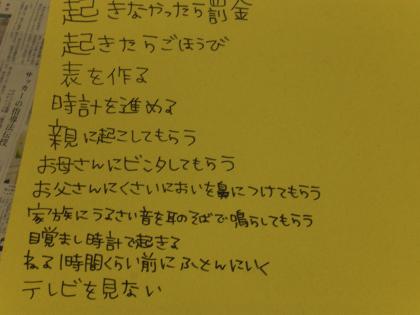 起きなやったら罰金
起きたらごほうび
表を作る
時計を進める
親に起こしてもらう
お母さんにビンタしてもらう
お父さんにくさいにおいを鼻につけてもらう
家族にうるさい音を耳のそばで鳴らしてもらう
目覚まし時計で起きる
ねる1時間くらい前にふとんにいく
テレビを見ない
サッカーの指導法伝授